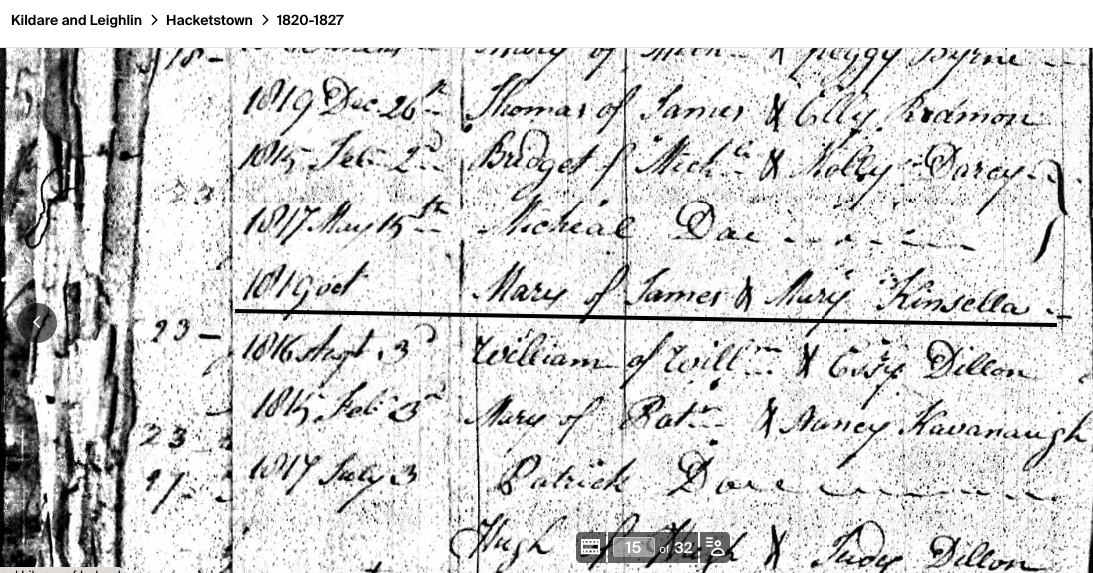 Kildare and Leighlin > Hacketstown > 1820-1827
18 - Mary of Mich & Peggy Byrne
1819 Dec 26th Thomas of James & Elly Redmon
1815 Feb 2d Bridget of Michl & Molly Darcy
1817 May 15th Micheal Do
1819 Oct Mary of James & Mary Kinsella
23 - 1816 Augt 3d William of Willm & Essy Dillon
1815 Feb 23d Mary of Patr & Nancy Kavanaugh
23
27 1817 July 3 Patrick Do
Hugh of Hugh & Judy Dillon
15 of 32